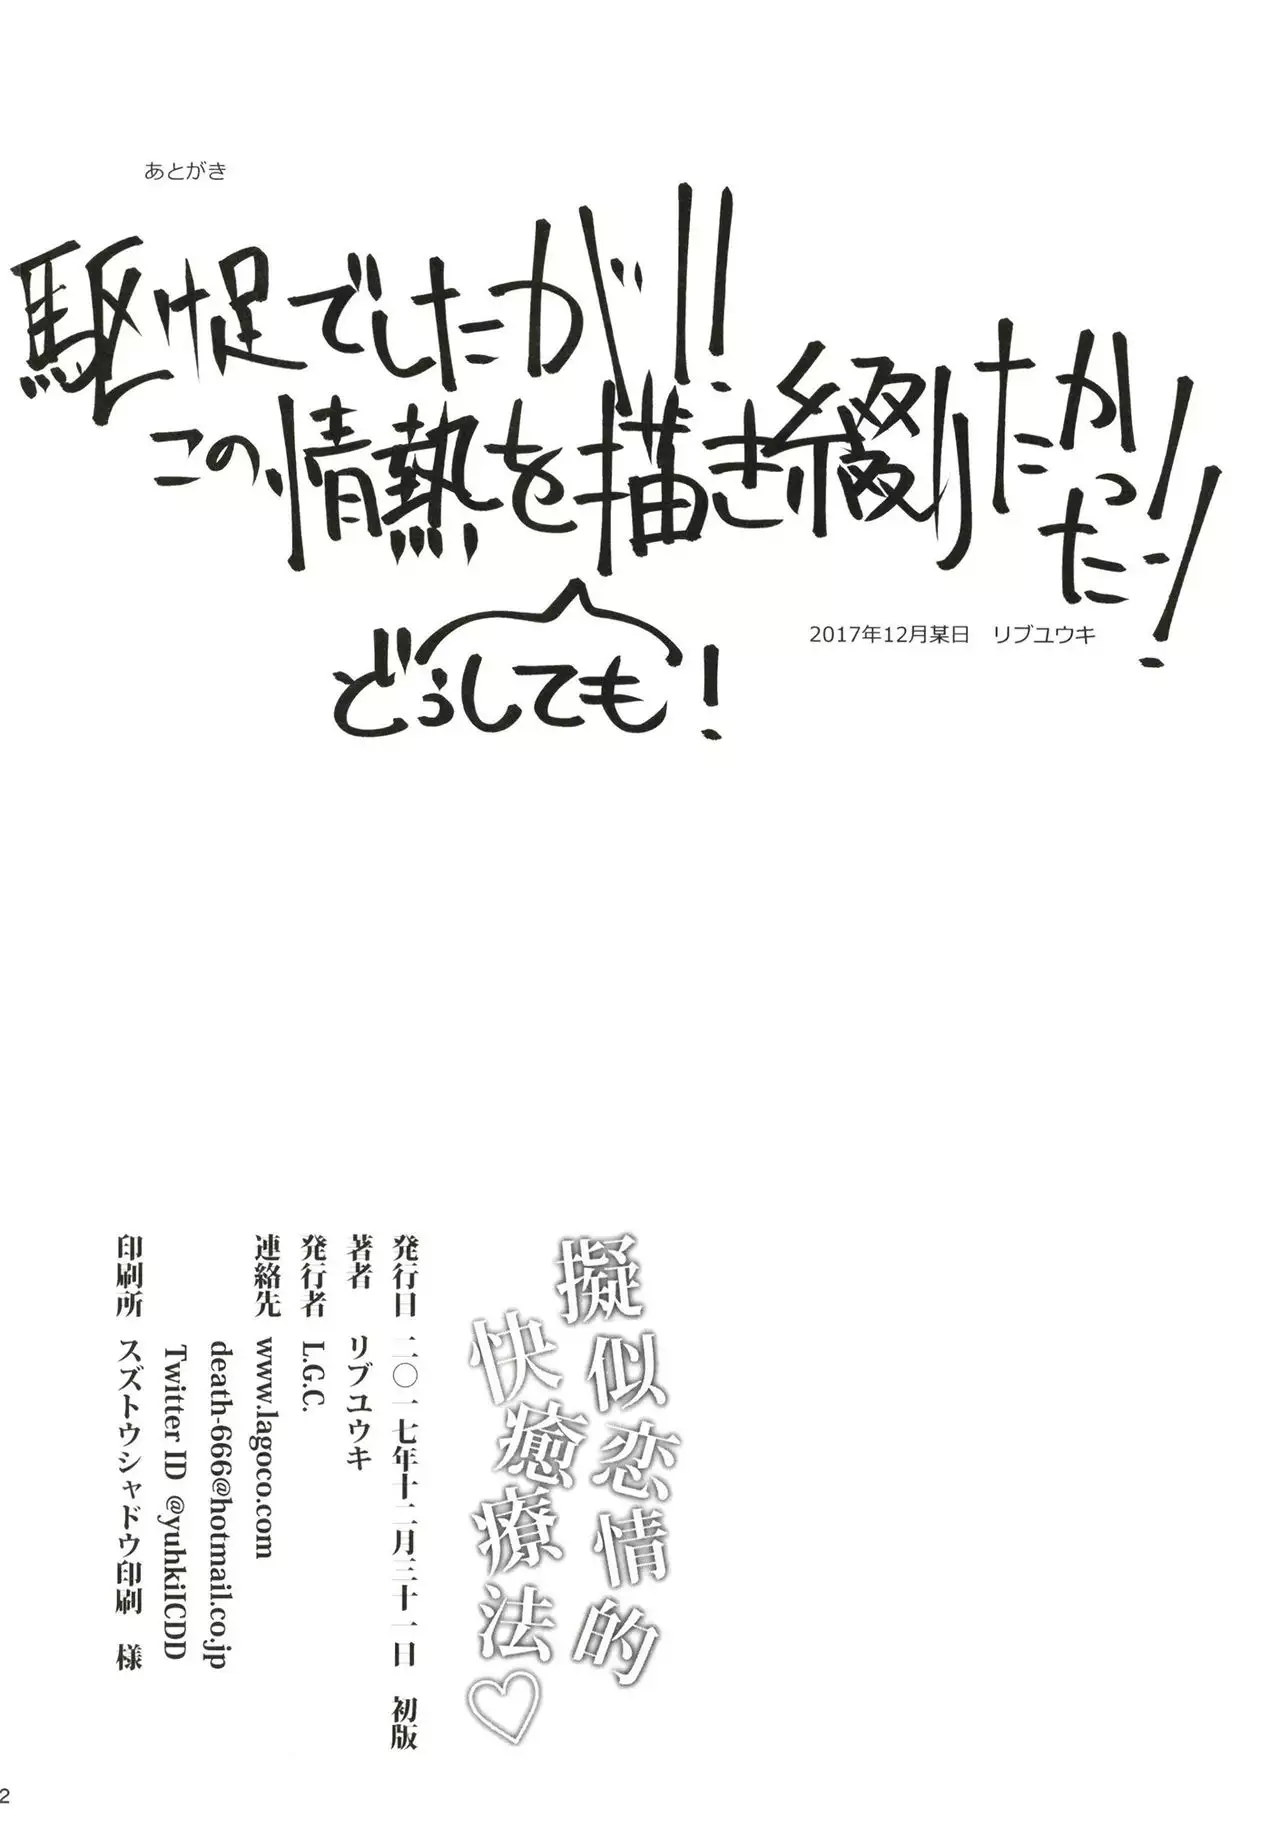 あとがき
駆け足でしたが!!
この情熱を描き綴りたかった!!
どぅしても!
2017年12月某日　リブユウキ
擬似恋情的
快癒療法♡
発行日 二〇一七年十二月三十一日 初版
著者 リブユウキ
発行者 L.G.C.
連絡先 www.lagoco.com
death-666@hotmail.co.jp
Twitter ID @yuhkiICDD
印刷所 スズトウシャドウ印刷 様
2